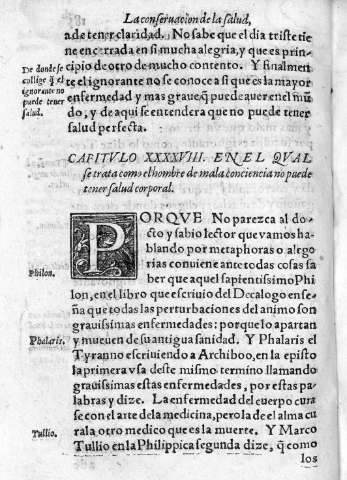 La conseruacion de la salud,
a de tener claridad. No sabe que el dia triste tie
ne encerrada en si mucha alegria, y que es prin-
cipio de otro de mucho contento. Y finalmen
te el ignorante no se conoce a si que es la mayor
enfermedad y mas graue q̃ puede auer en el mũ
do, y de aqui se entendera que no puede tener
salud perfecta.
De donde se
collige q̃ el
ignorante no
puede tener
salud.
CAPITVLO XXXXVIII. EN EL QVAL
se trata como el hombre de mala conciencia no puede
tener salud corporal.
PORQVE No parezca al do-
cto y sabio lector que vamos ha-
blando por metaphoras o alego
rias conuiene ante todas cosas sa
ber que aquel sapientissimo Phi
lon, en el libro que escriuio del Decalogo ense-
ña que todas las perturbaciones del animo son
grauissimas enfermedades: porque lo apartan
y mueuen de su antigua sanidad. Y Phalaris el
Tyranno escriuiendo a Archiboo, en la episto
la primera vsa deste mismo termino llamando
grauissimas estas enfermedades, por estas pa-
labras y dize. La enfermedad del cuerpo cura
se con el arte de la medicina, pero la de el alma cu
rala otro medico que es la muerte. Y Marco
Tullio en la Philippica segunda dize, q̃ como
los
Philon.
Phalaris.
Tullio.